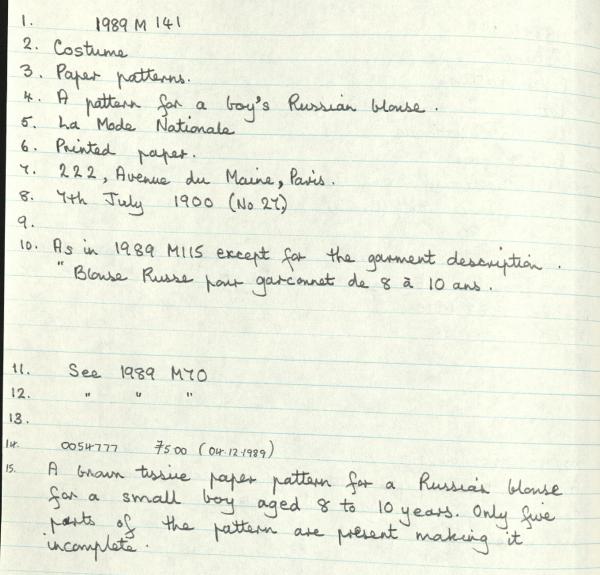 1. 1989 M 141
2. Costume
3. Paper patterns.
4. A pattern for a boy's Russian blouse.
5. La Mode Nationale
6. Printed paper.
7. 222, Avenue du Maine, Paris.
8. 7th July 1900 (No 27)
9.
10. As in 1989 M115 except for the garment description.
" Blouse Russe pour garconnet de 8 à 10 ans.
11. See 1989 M70
12. " " "
13.
14. 0054777 7500 (04.12.1989)
15. A brown tissue paper pattern for a Russian blouse
for a small boy aged 8 to 10 years. Only five
parts of the pattern are present making it
incomplete.